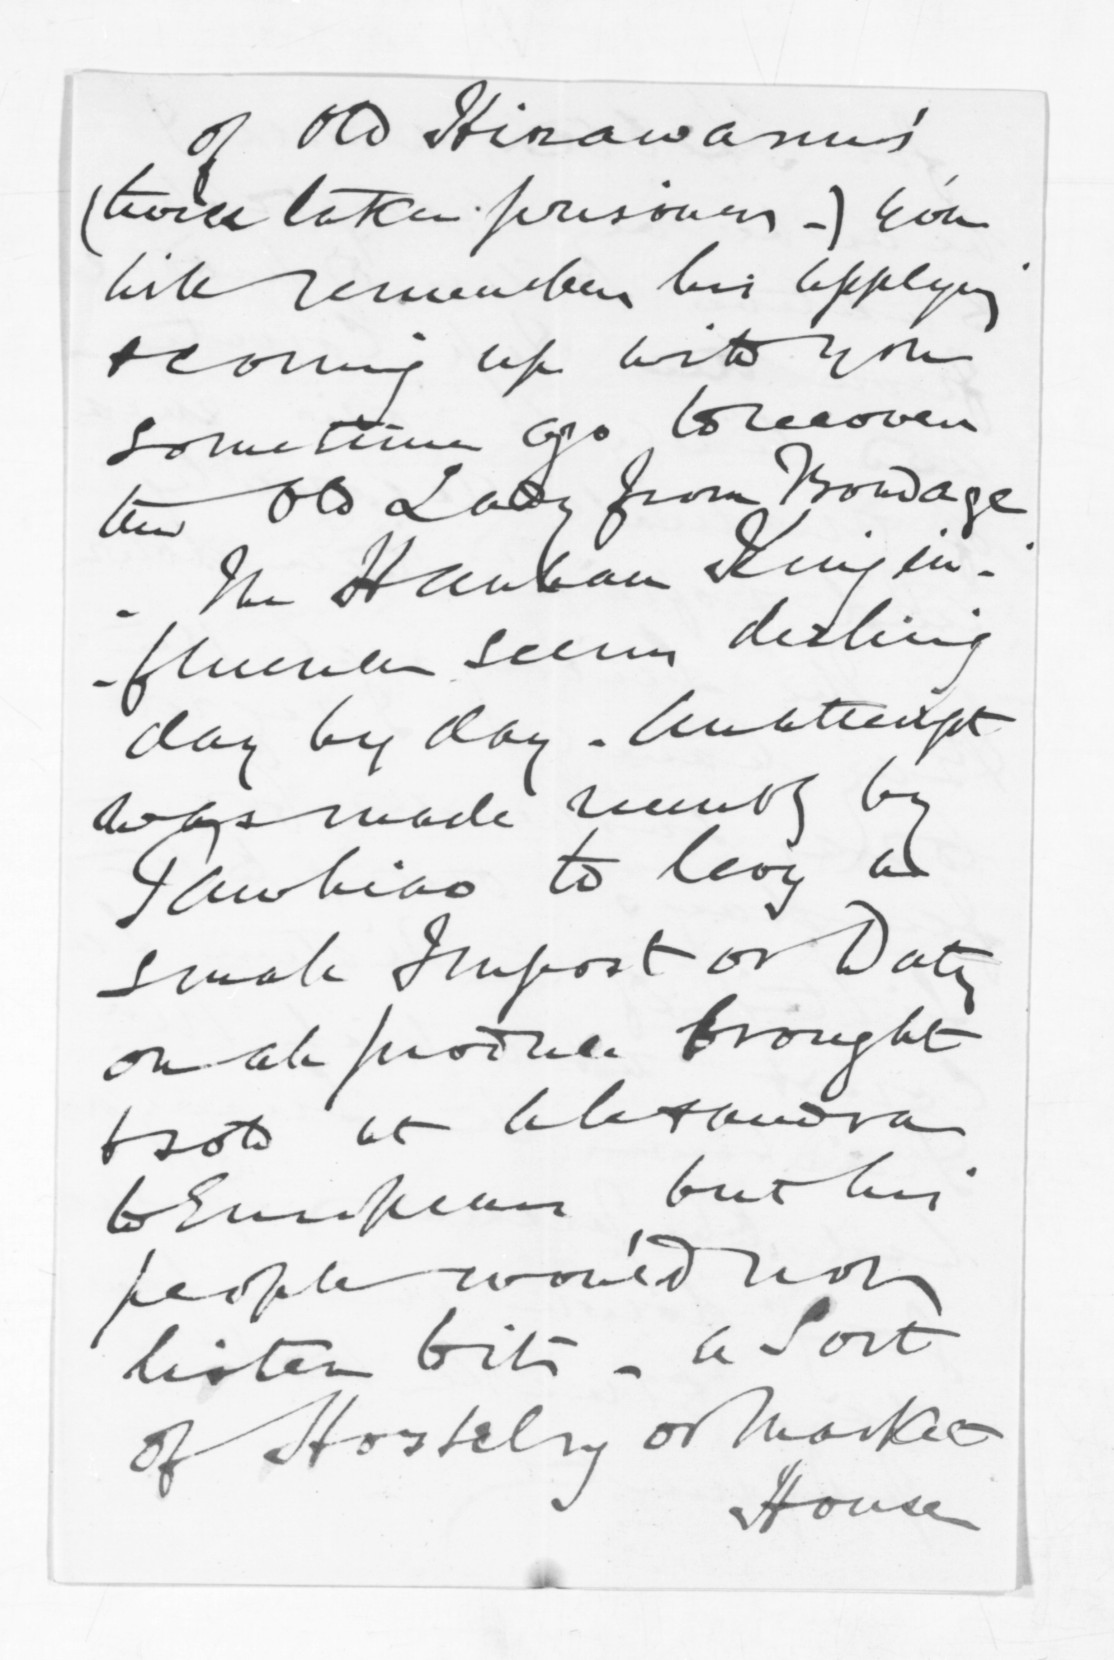 of Old Hirawanu's
(twice taken prisoner -) You
will remember his applying
& coming up with you
sometime ago to recover
the Old Lady from Bondage
- The Hauhau King in-
-fluence seems declining
day by day - An attempt
was made recently by
Tawhiao to levy a
small Impost or Duty
on all produce brought
& sold at Alexandra
to Europeans but his
people would not
listen to it - a Sort
of Hostelry or Market
House